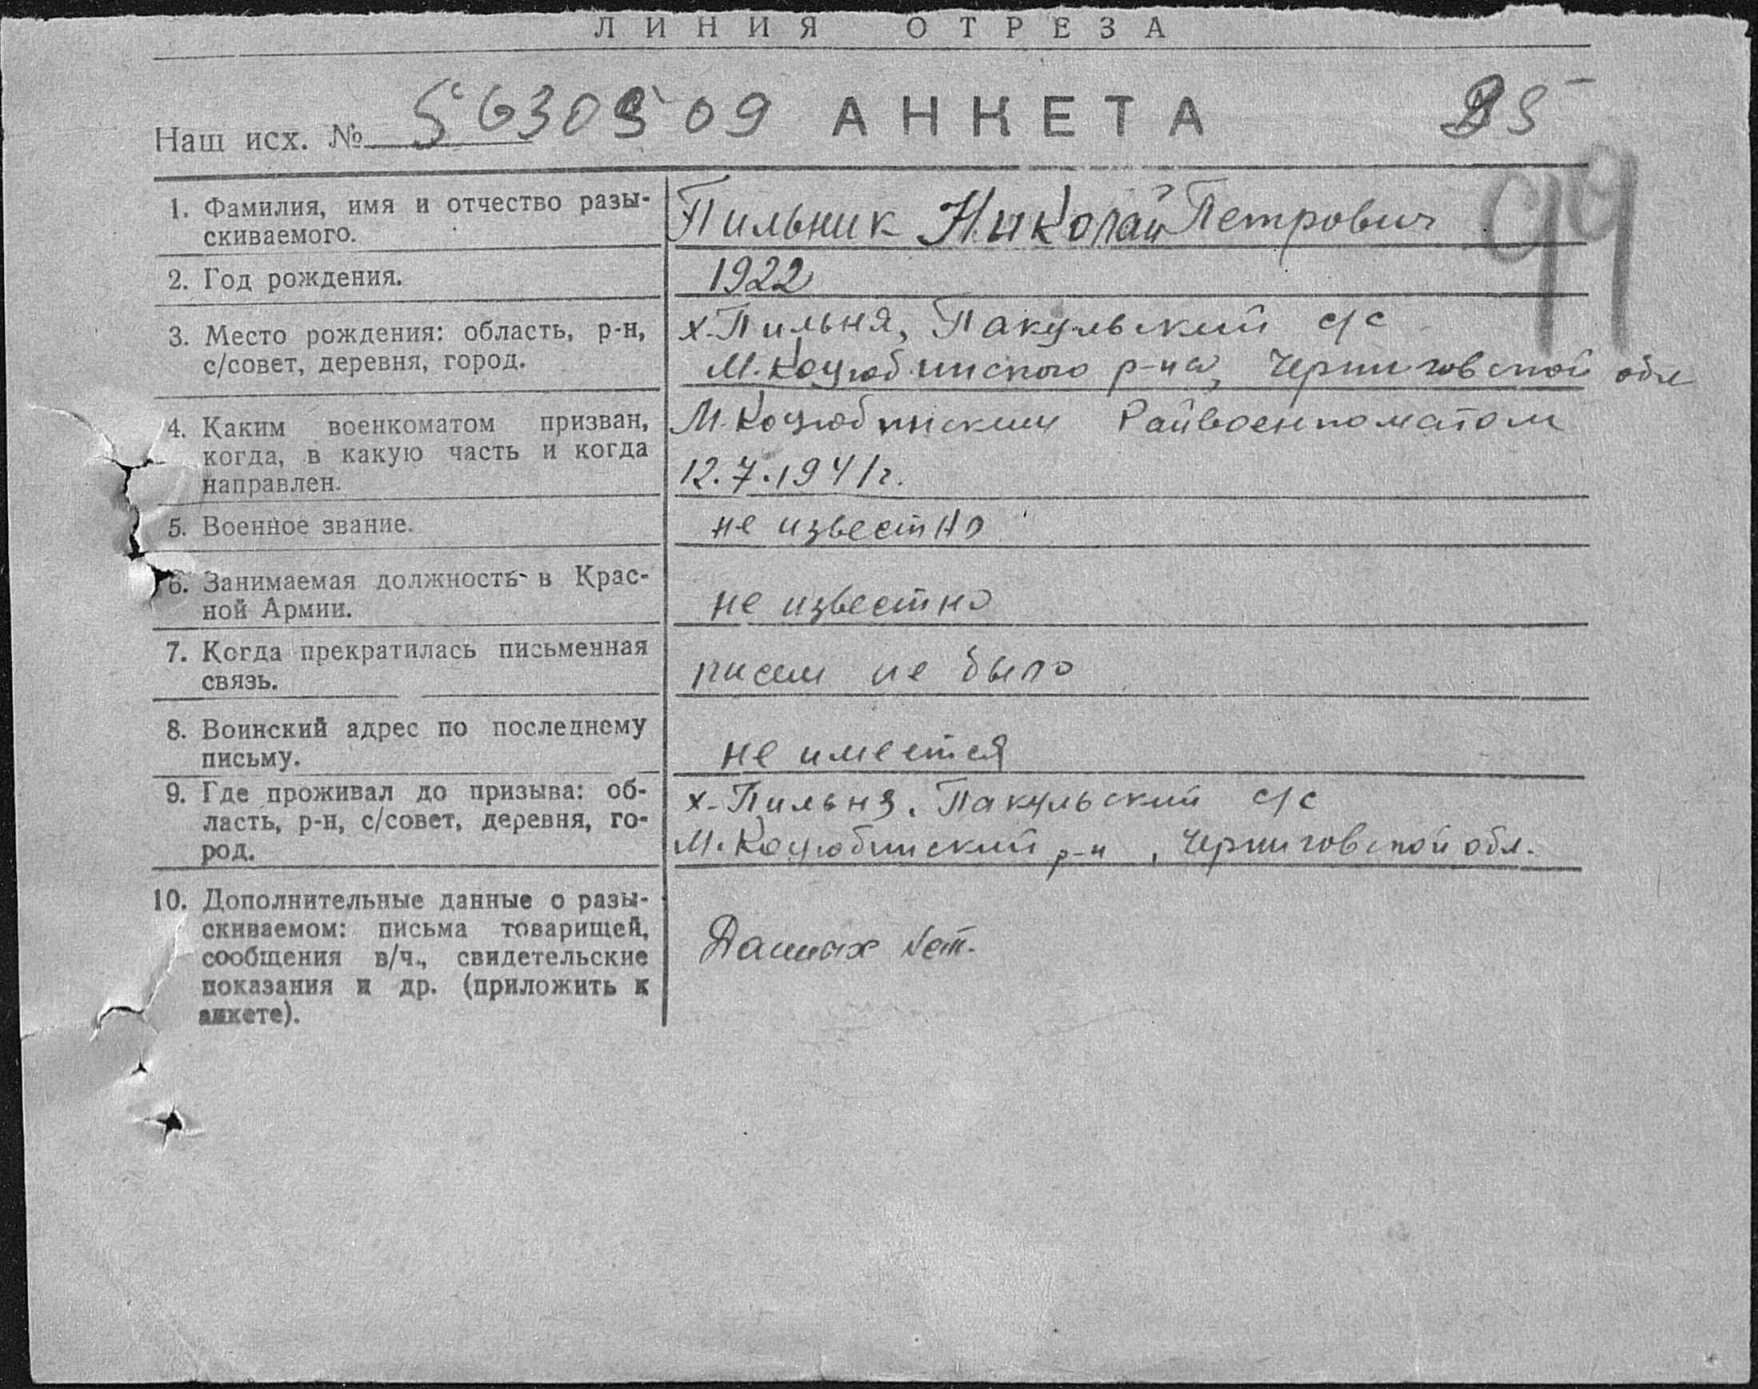 ЛИНИЯ ОТРЕЗА
Наш исх. № 5630509 АНКЕТА
99
1. Фамилия, имя и отчество разы-
скиваемого.
Пильник Николай Петрович
2. Год рождения.
1922
3. Место рождения: область, р-н,
с/совет, деревня, город.
х-Пильня, Пакульский с/с
М.Коцюбинского р-на, Черниговской обл
4. Каким военкоматом призван,
когда, в какую часть и когда
направлен.
М.Коцюбинским Райвоенкоматом
12.7.1941г.
5. Военное звание.
не известно
6. Занимаемая должность в Крас-
ной Армии.
не известно
7. Когда прекратилась письменная
связь.
писем не было
8. Воинский адрес по последнему
письму.
не имеется
9. Где проживал до призыва: об-
ласть, р-н, с/совет, деревня, го-
род.
х-Пильня, Пакульский с/с
М.Коцюбинский р-н, Черниговской обл.
10. Дополнительные данные о разы-
скиваемом: письма товарищей,
сообщения в/ч., свидетельские
показания и др. (приложить к
анкете).
Данных нет.